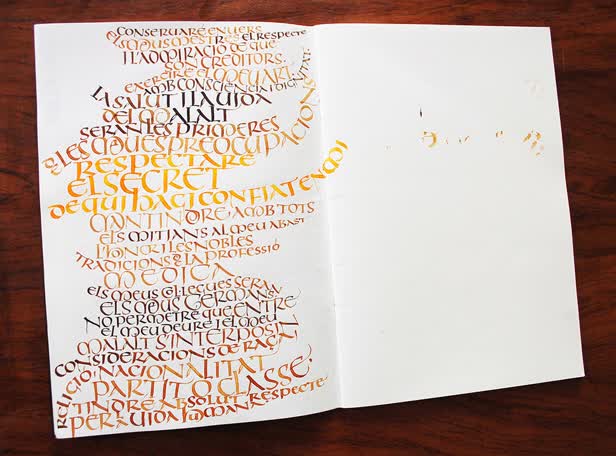 CONSERVARÉ ENVERS
ELS MEUS MESTRES EL RESPECTE
I L'ADMIRACIÓ DE QUE
SON CREDITORS.
EXERCIRÉ EL MEU ART
AMB CONSCIÈNCIA I DIGNITAT.
LA SALUT I LA VIDA
DEL MALALT
SERAN LES PRIMERES
DE LES MEUES PREOCUPACIONS
RESPECTARÉ
EL SECRET
DE QUI HAGI CONFIAT EN MI
MANTINDRÉ, AMB TOTS
ELS MITJANS AL MEU ABAST
L'HONOR I LES NOBLES
TRADICIONS DE LA PROFESSIÓ
MEDICA
ELS MEUS COL·LEGUES SERAN
ELS MEUS GERMANS
NO PERMETRÉ QUE ENTRE
EL MEU DEURE I EL MEU
MALALT S'INTERPOSIN
CONSIDERACIONS DE RAÇA,
RELIGIÓ, NACIONALITAT
PARTIT O CLASSE.
TINDRÉ ABSOLUT RESPECTE
PER A VIDA HUMANA